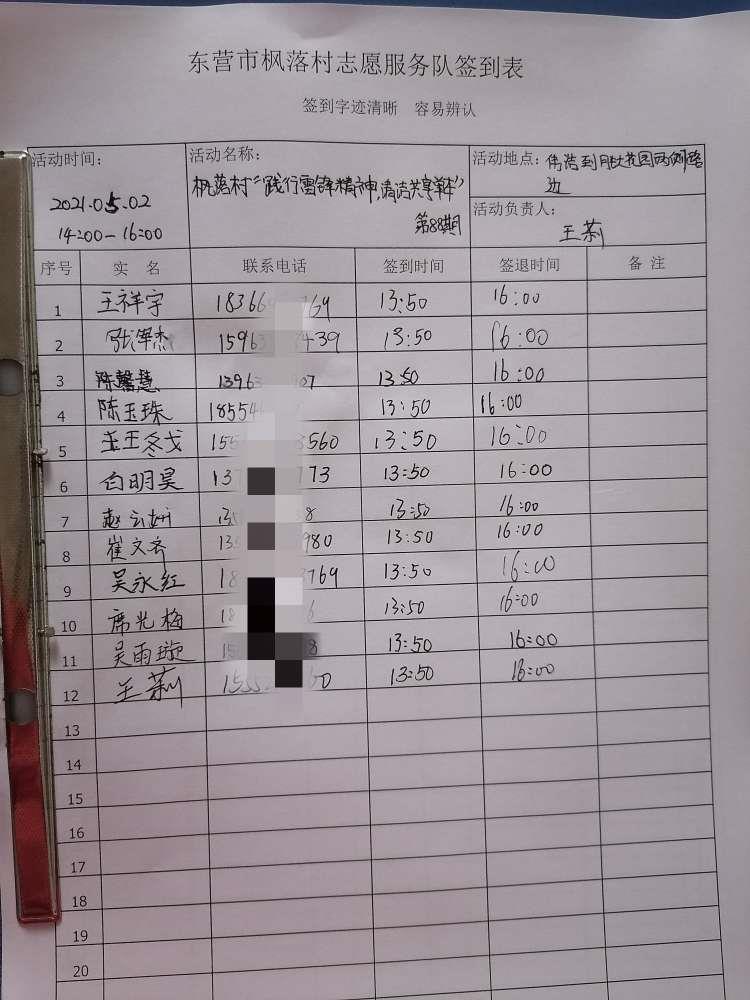 东营市枫落村志愿服务队签到表
签到字迹清晰 容易辨认
活动时间：
2021.05.02
14:00-16:00
活动名称：
枫落村“践行雷锋精神，清洁共享单车”
第88期
活动地点：
到 花园两侧路
边
活动负责人：
王莉
序号 实 名 联系电话 签到时间 签退时间 备 注
1 王祥宇 1836 769 13:50 16:00
2 张泽杰 1596 439 13:50 16:00
3 陈馨慧 1396 07 13:50 16:00
4 陈玉珠 1855 13:50 16:00
5 王冬戈 155 3560 13:50 16:00
6 白明昊 137 773 13:50 16:00
7 赵云妍 13 8 13:50 16:00
8 崔文齐 13 980 13:50 16:00
9 吴永红 18 3769 13:50 16:00
10 席光梅 18 6 13:50 16:00
11 吴雨璇 15 8 13:50 16:00
12 王莉 155 60 13:50 16:00
13
14
15
16
17
18
19
20